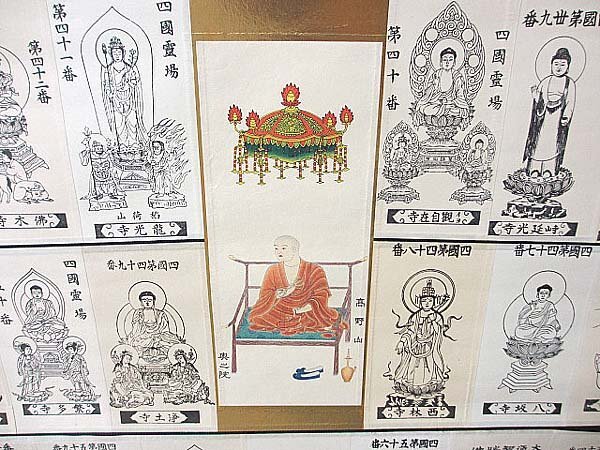 第四十二番
佛木寺
四國靈場
第四十一番
稲荷山
龍光寺
四國靈場
第四十番
觀自在寺
四國第卅九番
延光寺
四國靈場
十番
繁多寺
四國第四十九番
浄土寺
高野山
奥之院
四國第四十八番
西林寺
四國第四十七番
八坂寺
四國第五十九番
四國第五十六番